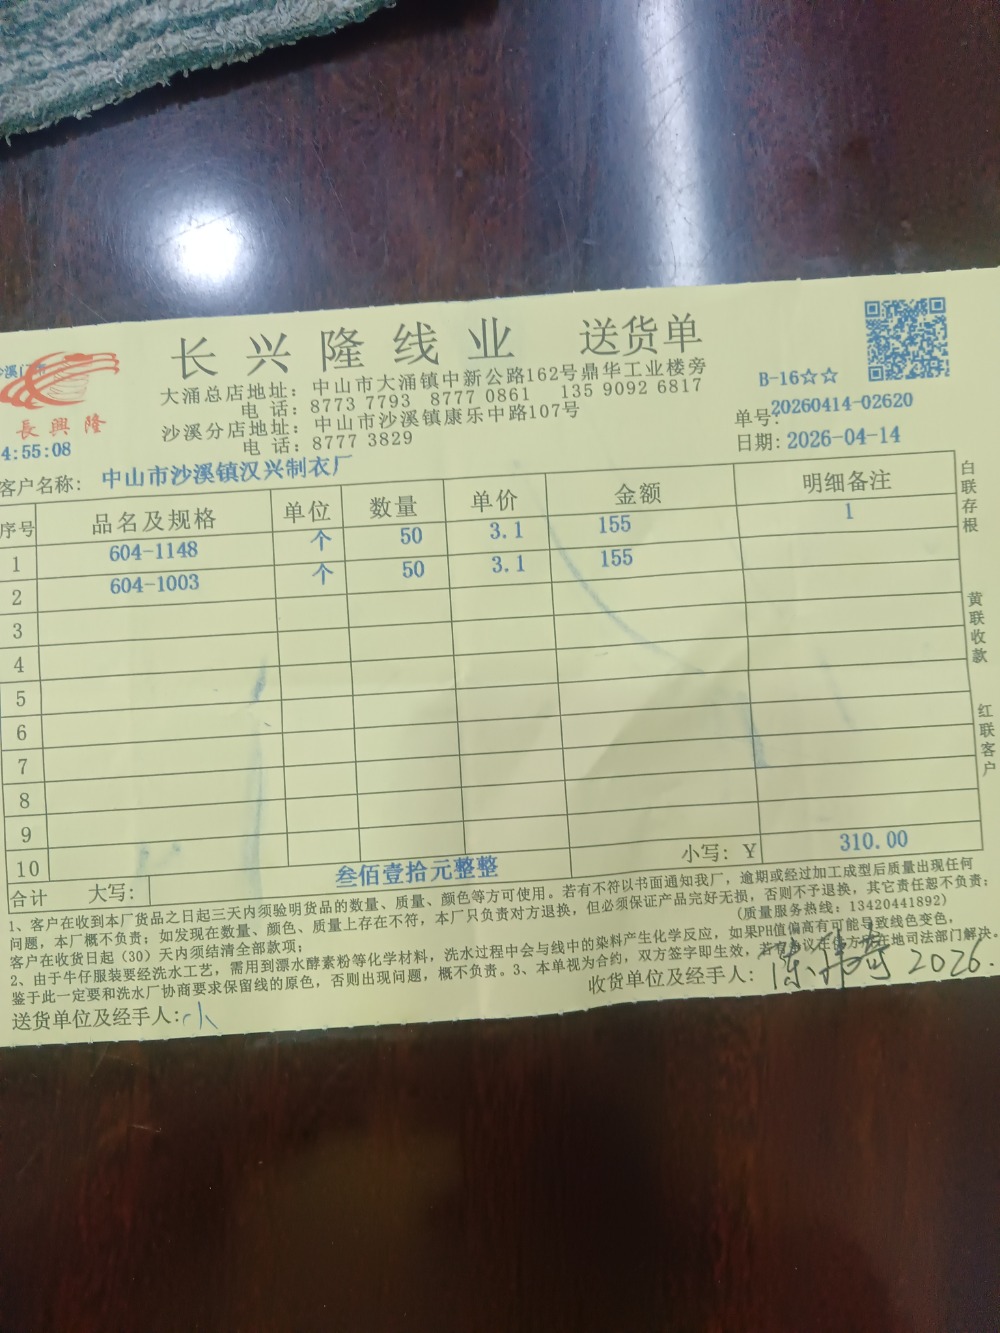 长兴隆线业 送货单
大涌总店地址：中山市大涌镇中新公路162号鼎华工业楼旁
电 话：8773 7793 8777 0861 135 9092 6817
沙溪分店地址：中山市沙溪镇康乐中路107号
电 话：8777 3829
長興隆
4:55:08
B-16☆☆
单号:20260414-02620
日期: 2026-04-14
客户名称: 中山市沙溪镇汉兴制衣厂
序号 品名及规格 单位 数量 单价 金额 明细备注
1 604-1148 个 50 3.1 155 1
2 604-1003 个 50 3.1 155
3
4
5
6
7
8
9
10
合计 大写: 叁佰壹拾元整整 小写: Y 310.00
白联存根
黄联收款
红联客户
1、客户在收到本厂货品之日起三天内须验明货品的数量、质量、颜色等方可使用。若有不符以书面通知我厂，逾期或经过加工成型后质量出现任何
问题，本厂概不负责；如发现在数量、颜色、质量上存在不符，本厂只负责对方退换，但必须保证产品完好无损，否则不予退换，其它责任恕不负责；
客户在收货日起（30）天内须结清全部款项； (质量服务热线：13420441892)
2、由于牛仔服装要经洗水工艺，需用到漂水酵素粉等化学材料，洗水过程中会与线中的染料产生化学反应，如果PH值偏高有可能导致线色变色，
鉴于此一定要和洗水厂协商要求保留线的原色，否则出现问题，概不负责。3、本单视为合约，双方签字即生效，若有争议在供方所在地司法部门解决。
送货单位及经手人: 收货单位及经手人: 2026.